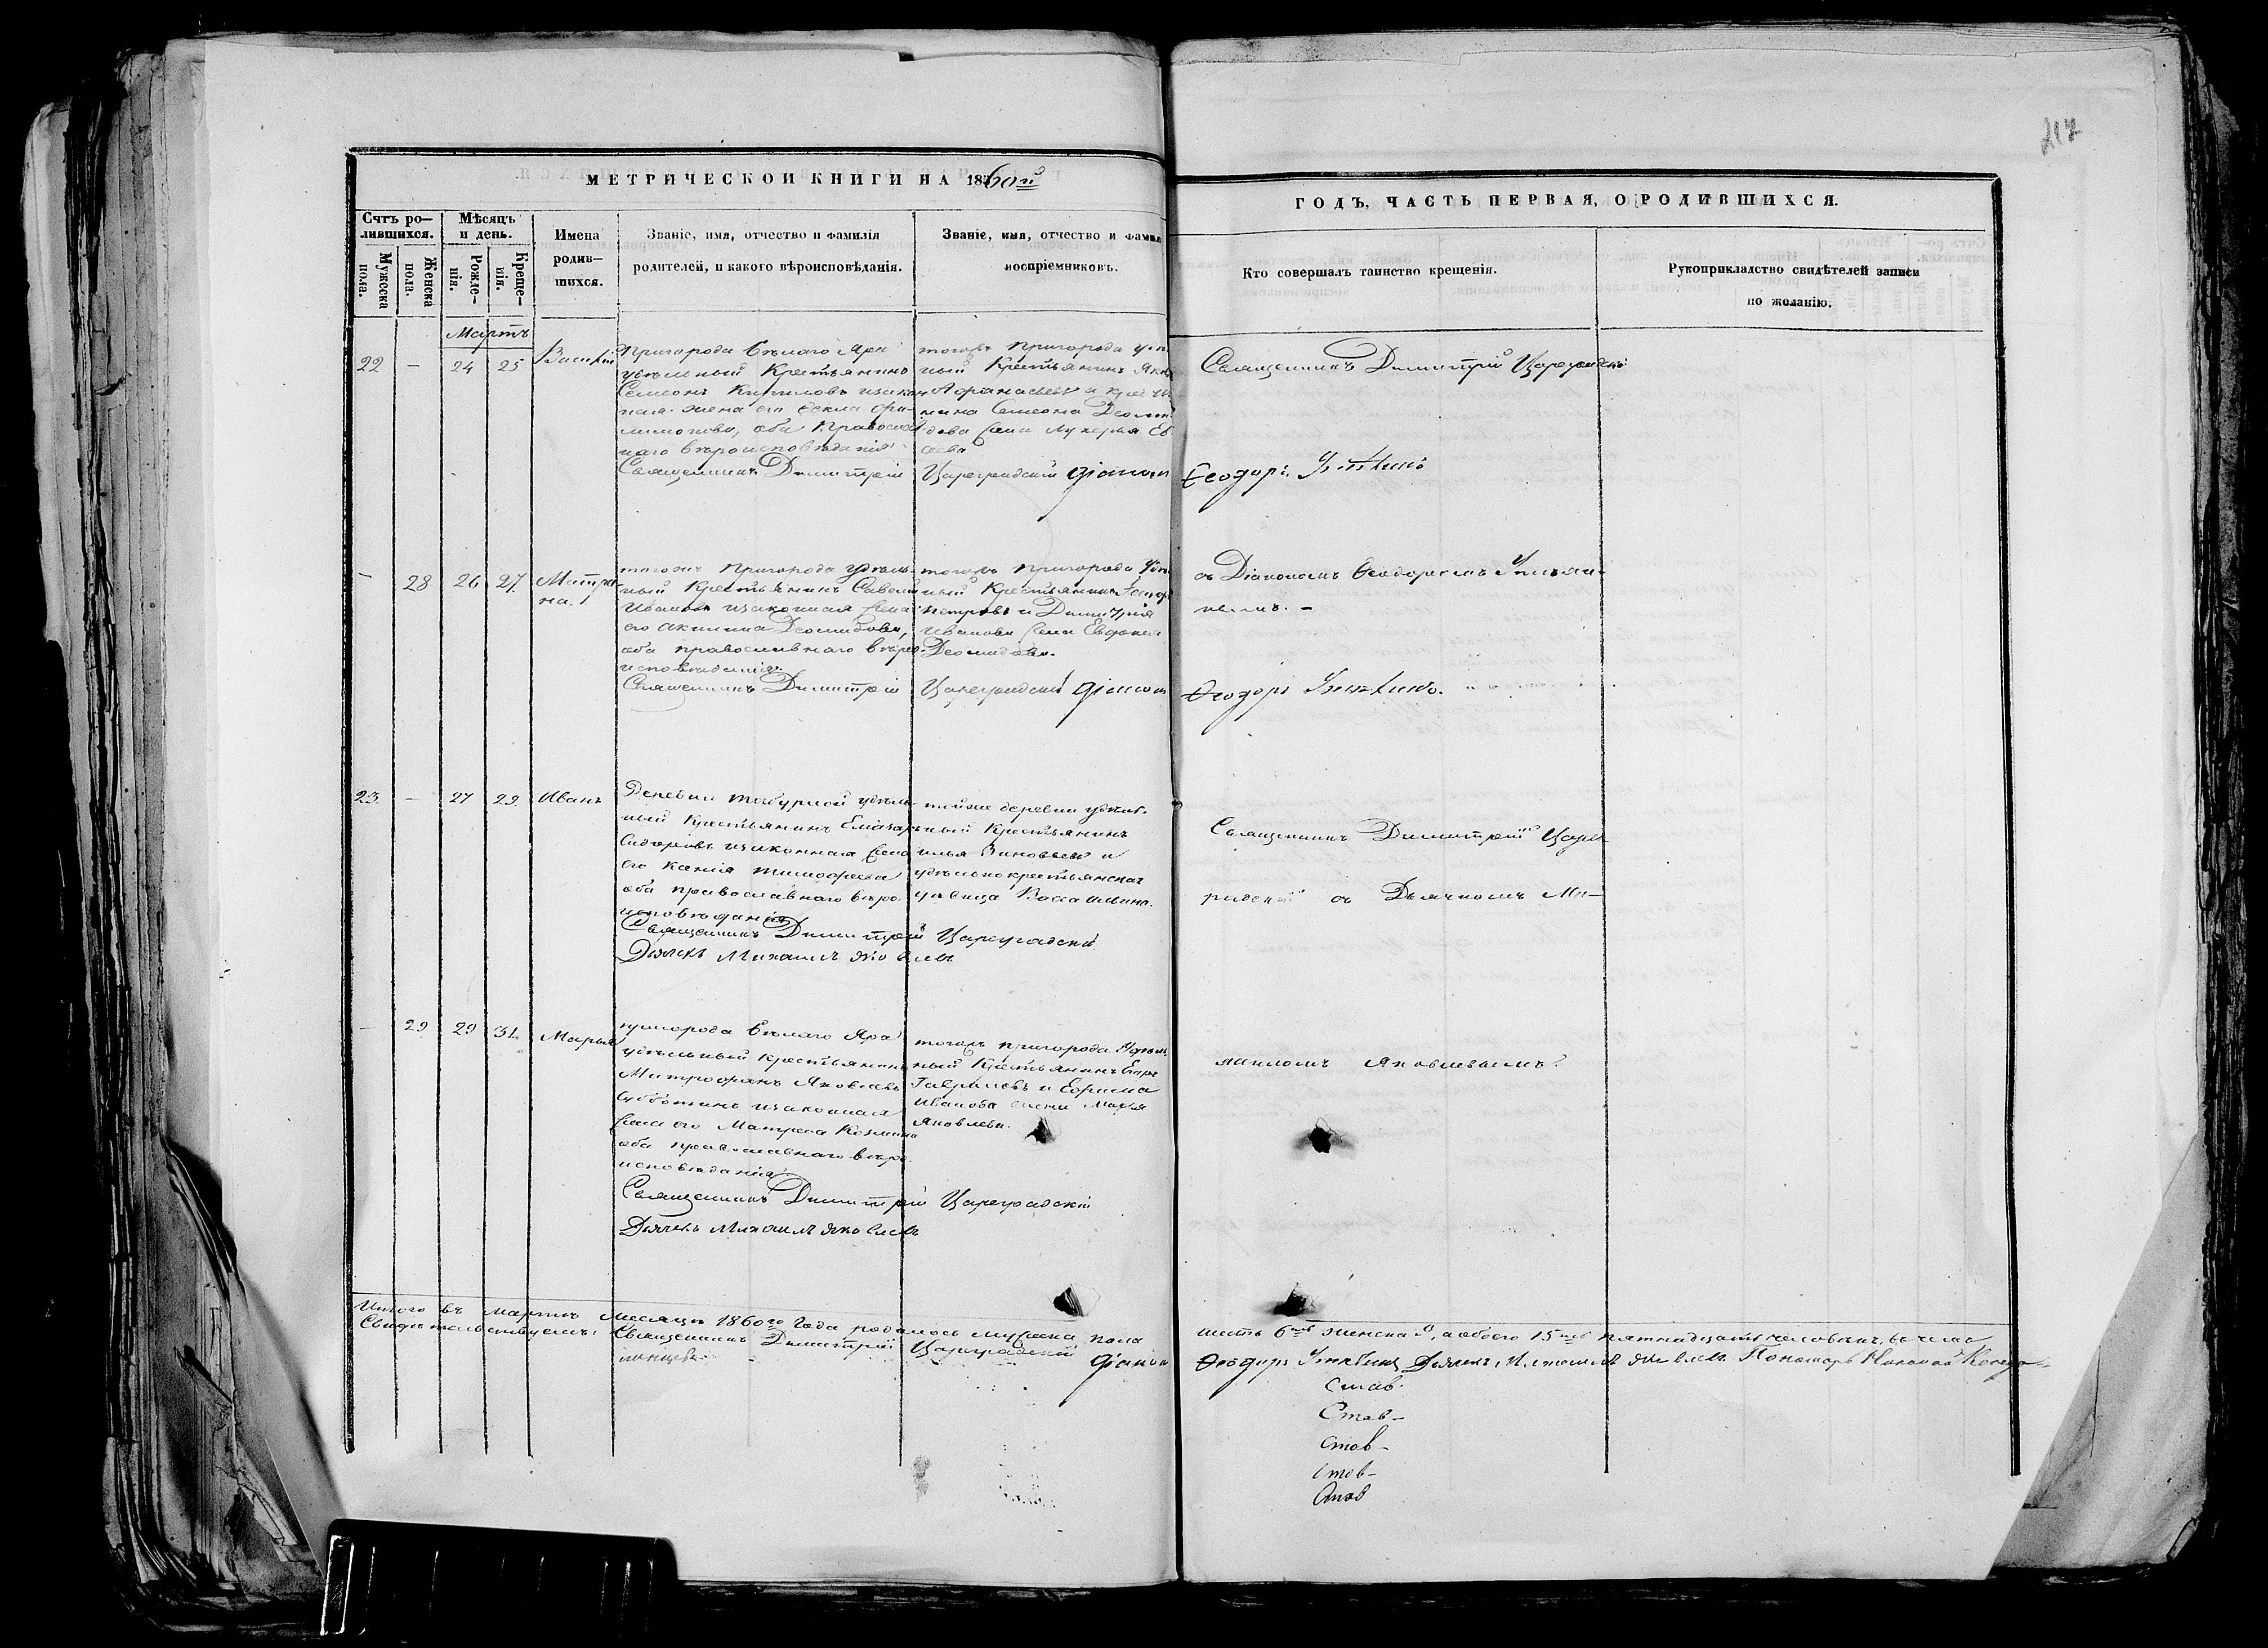 217
МЕТРИЧЕСКОЙ КНИГИ НА 1860й
ГОДЪ, ЧАСТЬ ПЕРВАЯ, О РОДИВШИХСЯ.
Счтъ ро–
лившихся.
Мужеска
пола.
Женска
пола.
Мѣсяцъ
и день.
Рожде–
нія.
Креще–
нія.
Имена
родив–
шихся.
Званіе, имя, отчество и фамилія
родителей, и какого вѣроисповѣданія.
Званіе, имя, отчество и фамил
воспріемниковъ.
Кто совершалъ таинство крещенія.
Рукоприкладство свидѣтелей записи
по желанію.
Мартъ
22 – 24 25 Василій
Пригорода Бѣлаго Яра
удѣльный Крестьянинъ
Семеонъ Кириловъ изакон
ная жена его Фекла
оба Православ
наго вѣроисповѣданія
Священникъ Димитрій Цареградскій діаконъ Ѳеодоръ
тогожъ Пригорода
ный Крестьянинъ
Афанасьевъ и
Семеона
Лукерья Ев
сеева
Священникъ Димитрій Цареградскій
– 28 26 27 Матре
на.
тогожъ Пригорода удѣль
ный Крестьянинъ
Ивановъ изаконная жена
его Акилина Деомидова,
оба православнаго вѣро
исповѣданія.
Священникъ Димитрій Цареградскій діаконъ Ѳеодоръ
тогожъ Пригорода
ный Крестьянинъ
Петровъ и Димитрія
Иванова жена Евдокия
Деомидова.
съ Діакономъ Ѳеодоромъ
23 – 27 29 Иванъ
Деревни удѣль
ный Крестьянинъ Елиазаръ
Сидоровъ изаконная жена
его Ксенія Тимофеева
оба православнаго вѣро
исповѣданія
Священникъ Димитрій Цареградскій
Дьячекъ Михаилъ Яковлевъ
тойже деревни удѣль
ный Крестьянинъ
Илья Зиновьевъ и
удѣльнокрестьянская
дѣвица Васса Ильина.
Священникъ Димитрій Царег
радскій съ Дьячкомъ Ми–
хаиломъ Яковлевымъ.
– 29 29 31 Марья
пригорода Бѣлаго Яра
удѣльный Крестьянинъ
Митрофанъ Яковлевъ
Субботинъ изаконная
жена его Матрена Козмина
оба православнаго вѣро
исповѣданія.
Священникъ Димитрій Цареградскій
Дьячекъ Михаилъ Яковлевъ
тогожъ пригорода Удѣль
ный Крестьянинъ Егоръ
Гавриловъ и Ефима
Иванова жена Марья
Яковлева.
Итого въ Мартѣ Месяцѣ 1860го Года родилось мужеска пола
шесть 6ть женска 9, а обоего 15ть пятнадцать человѣкъ, въ чемъ
Свидѣтельствуемъ: Священникъ Димитрій Цареградскій діаконъ
Ѳеодоръ Дьячекъ Михаилъ Яковлевъ Пономарь Николай
Став.
Став–
Став–
Став–
Став